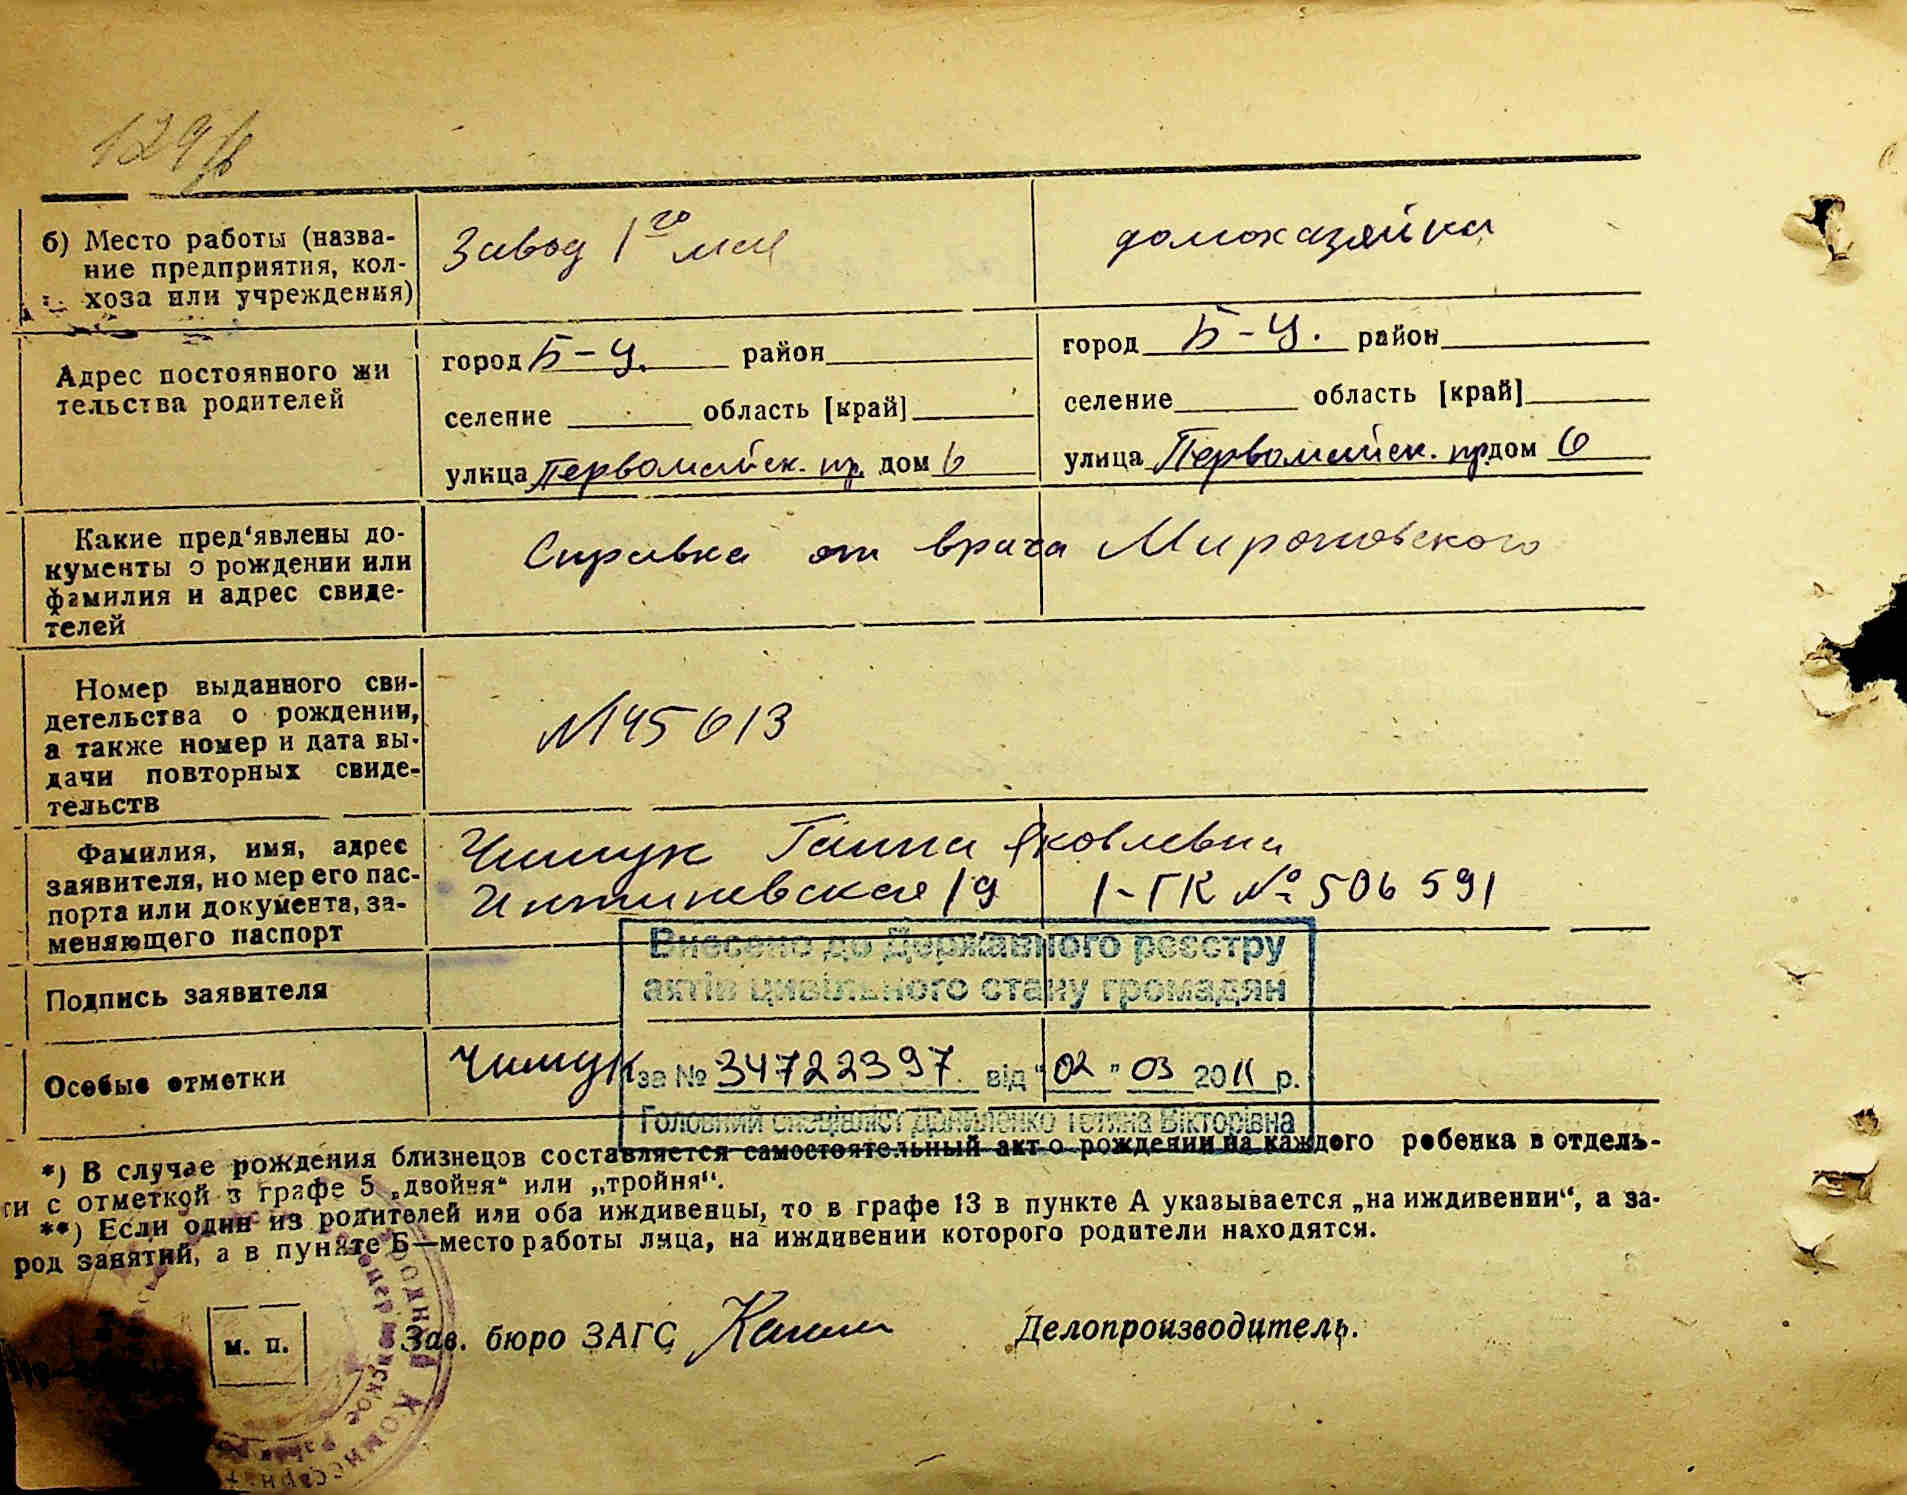 129
б) Место работы (назва-
ние предприятия, кол-
хоза или учреждения)
Завод 1го мая
домохазяйка
Адрес постоянного жи
тельства родителей
город Б-Ц. район
селение область [край]
улица Первомайск. пр. дом 6
город Б-Ц. район
селение область [край]
улица Первомайск. пр. дом 6
Какие пред'явлены до-
кументы о рождении или
фамилия и адрес свиде-
телей
Справка от врача Мироновского
Номер выданного сви-
детельства о рождении,
а также номер и дата вы-
дачи повторных свиде-
тельств
N 145613
Фамилия, имя, адрес
заявителя, номер его пас-
порта или документа, за-
меняющего паспорт
Чимук Ганна Яковлевна
19 1-ГК № 506591
Подпись заявителя
Внесено до Державного реєстру
актів цивільного стану громадян
Особые отметки
Чимук
за № 34722397 від "02" 03 2011 р.
Головний спеціаліст Даниленко Тетяна Вікторівна
*) В случае рождения близнецов составляется самостоятельный акт о рождении на каждого ребенка в отдель-
ти с отметкой в графе 5 „двойня“ или „тройня“.
**) Если один из родителей или оба иждивенцы, то в графе 13 в пункте А указывается „на иждивении“, а за-
род занятий, а в пункте Б—место работы лица, на иждивении которого родители находятся.
м. п.
Зав. бюро ЗАГС
Делопроизводитель.